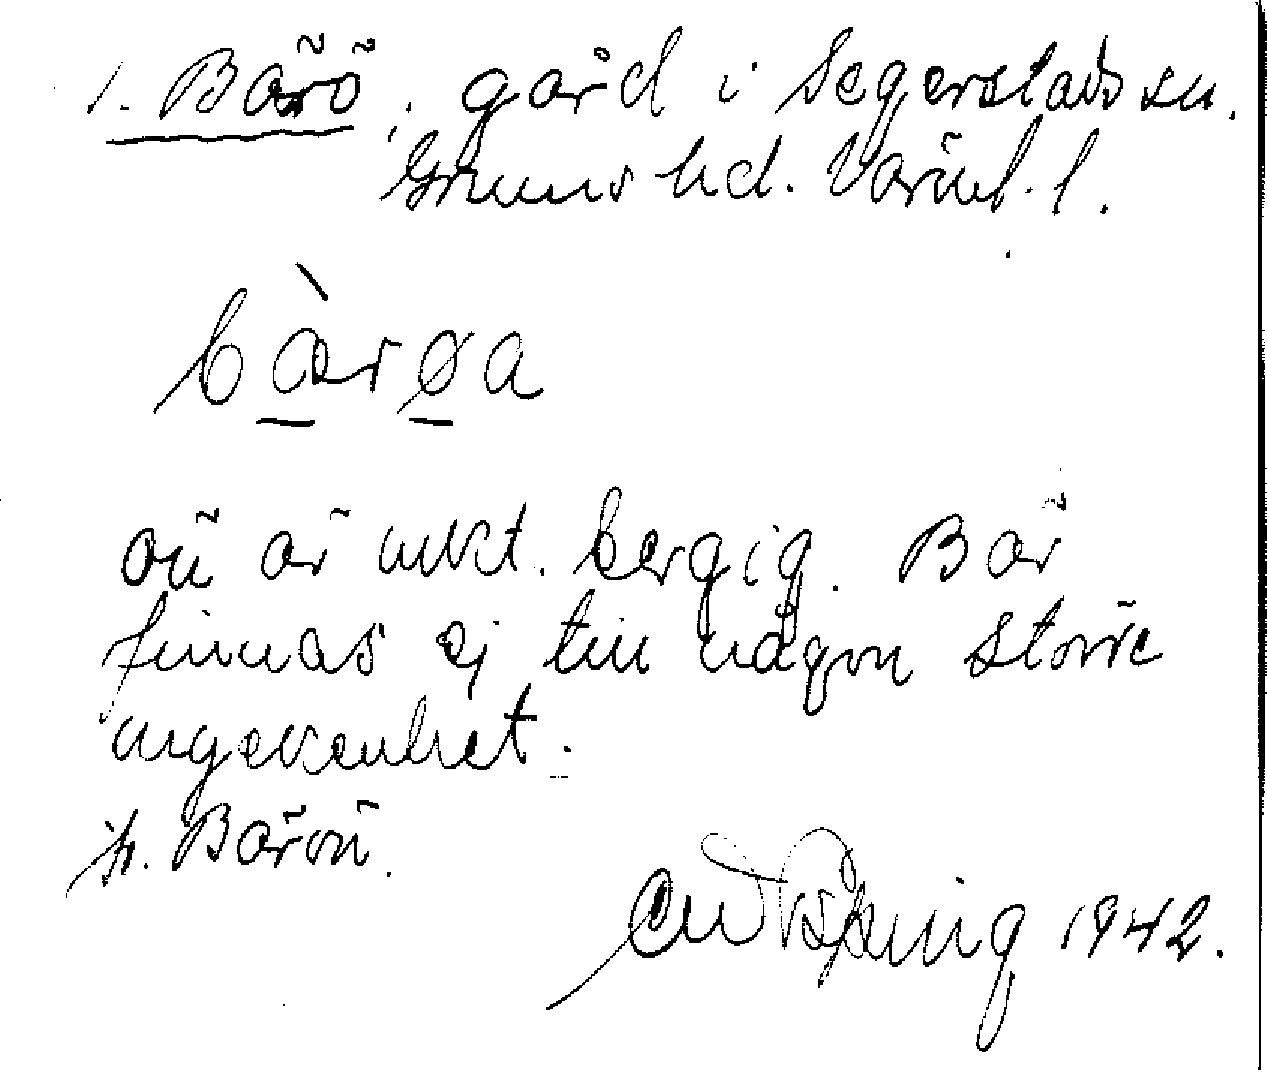 1. Bärö, gård i Segerstads sn.
Grums hd. Värml. l.
bàrøa
ön är mkt. bergig. Bär
finnas ej till någon större
myckenhet.
jfr. Bärön.
1942.